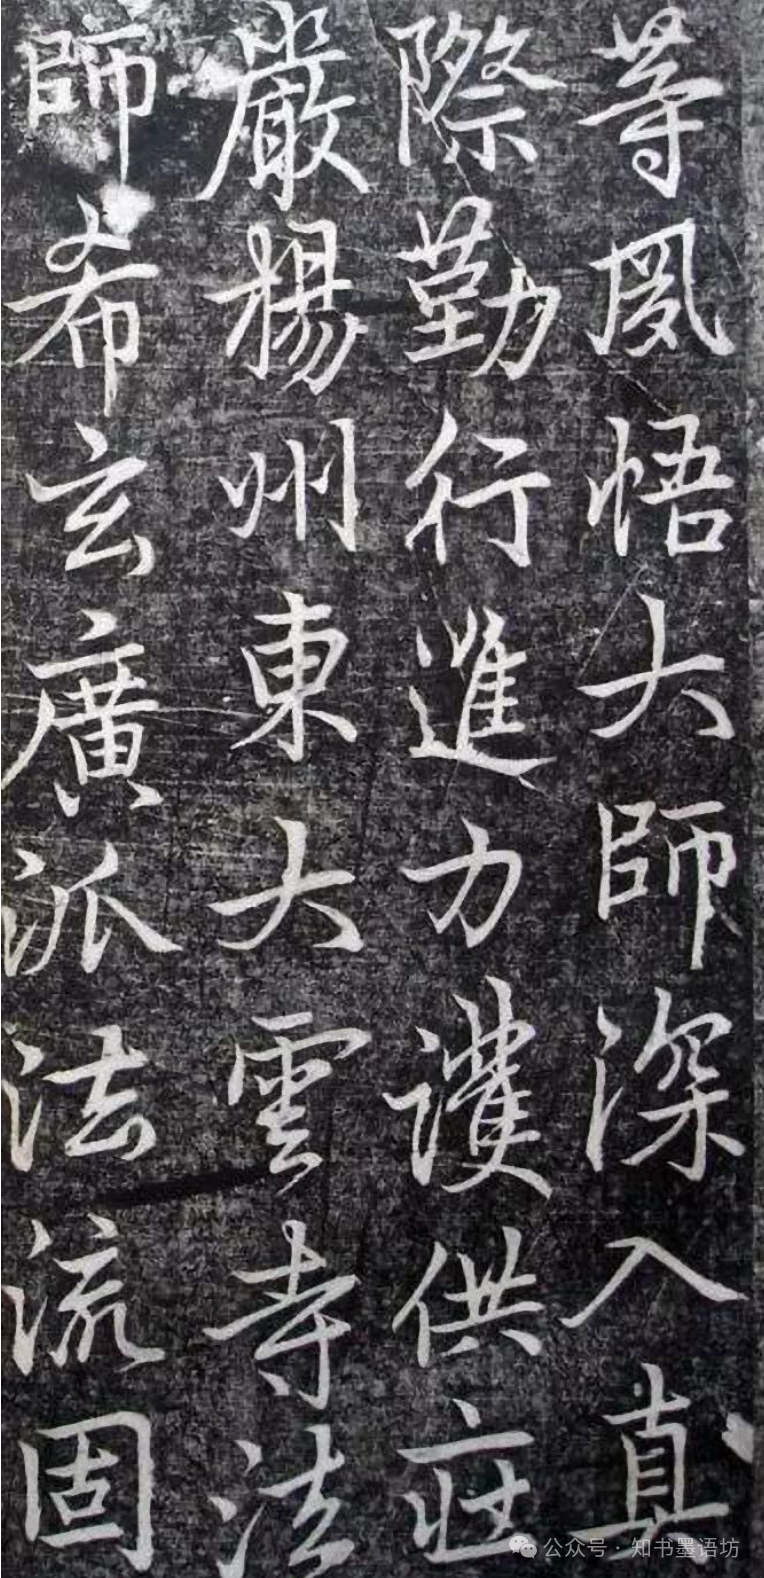 等夙悟大師深入真
際勤行進力護供莊
嚴楊州東大雲寺法
師希玄廣派法流固
公众号·知书墨语坊